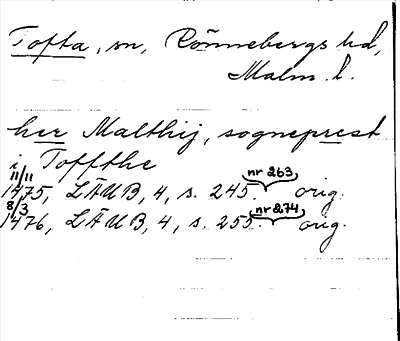 Tofta, sn, Rönnebergs hd,
Malm. l.
her Malthij, sogneprest
i Toffthe
11/11 nr 263
1475, LÄUB, 4, s. 245. orig.
8/3 nr 274
1476, LÄUB, 4, s. 255. orig.